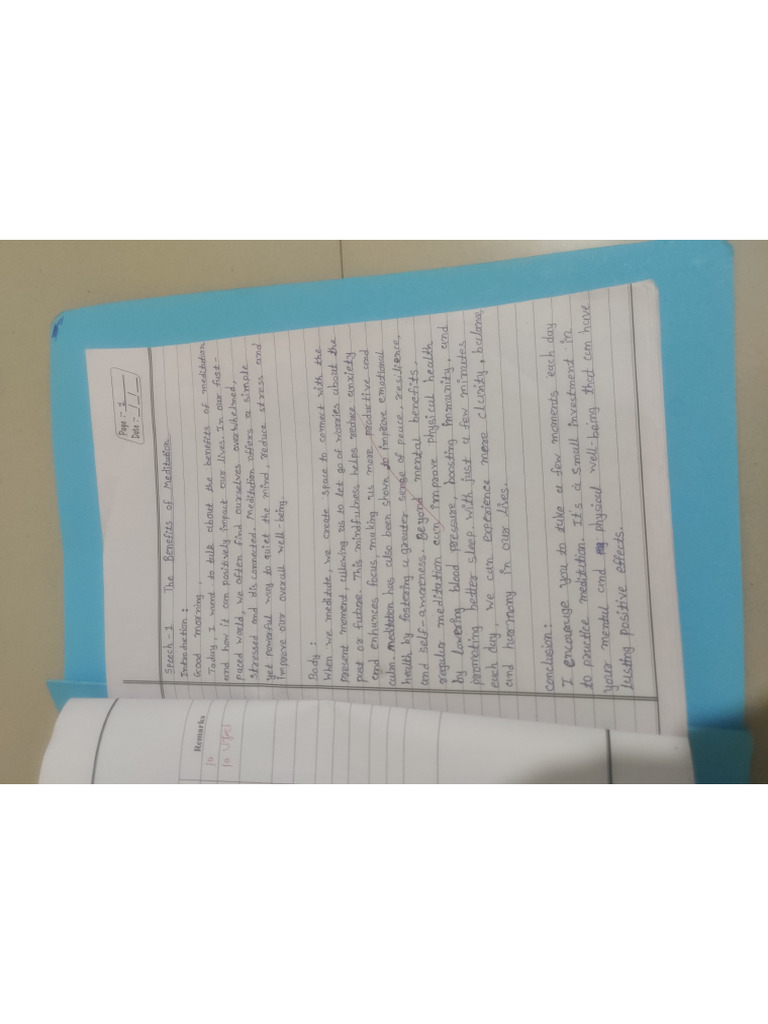 Page :- 1
Date :- / /
Speech-1 The Benefits of Meditation
Introduction :
Good morning,
Today, I want to talk about the benefits of meditation
and how it can positively impact our lives. In our fast-
paced world, we often find ourselves overwhelmed,
stressed and disconnected. Meditation offers a simple
yet powerful way to quiet the mind, reduce stress and
improve our overall well-being.
Body :
When we meditate, we create space to connect with the
present moment, allowing us to let go of worries about the
past or future. This mindfulness helps reduce anxiety
and enhances focus, making us more productive and
calm. meditation has also been shown to improve emotional
health by fostering a greater sense of peace, resilience,
and self-awareness. Beyond mental benefits,
regular meditation can improve physical health
by lowering blood pressure, boosting immunity, and
promoting better sleep. with just a few minutes
each day, we can experience more clarity, balance,
and harmony in our lives.
Conclusion :
I encourage you to take a few moments each day
to practice meditation. It's a small investment in
your mental and physical well-being that can have
lasting positive effects.
Remarks
10
10